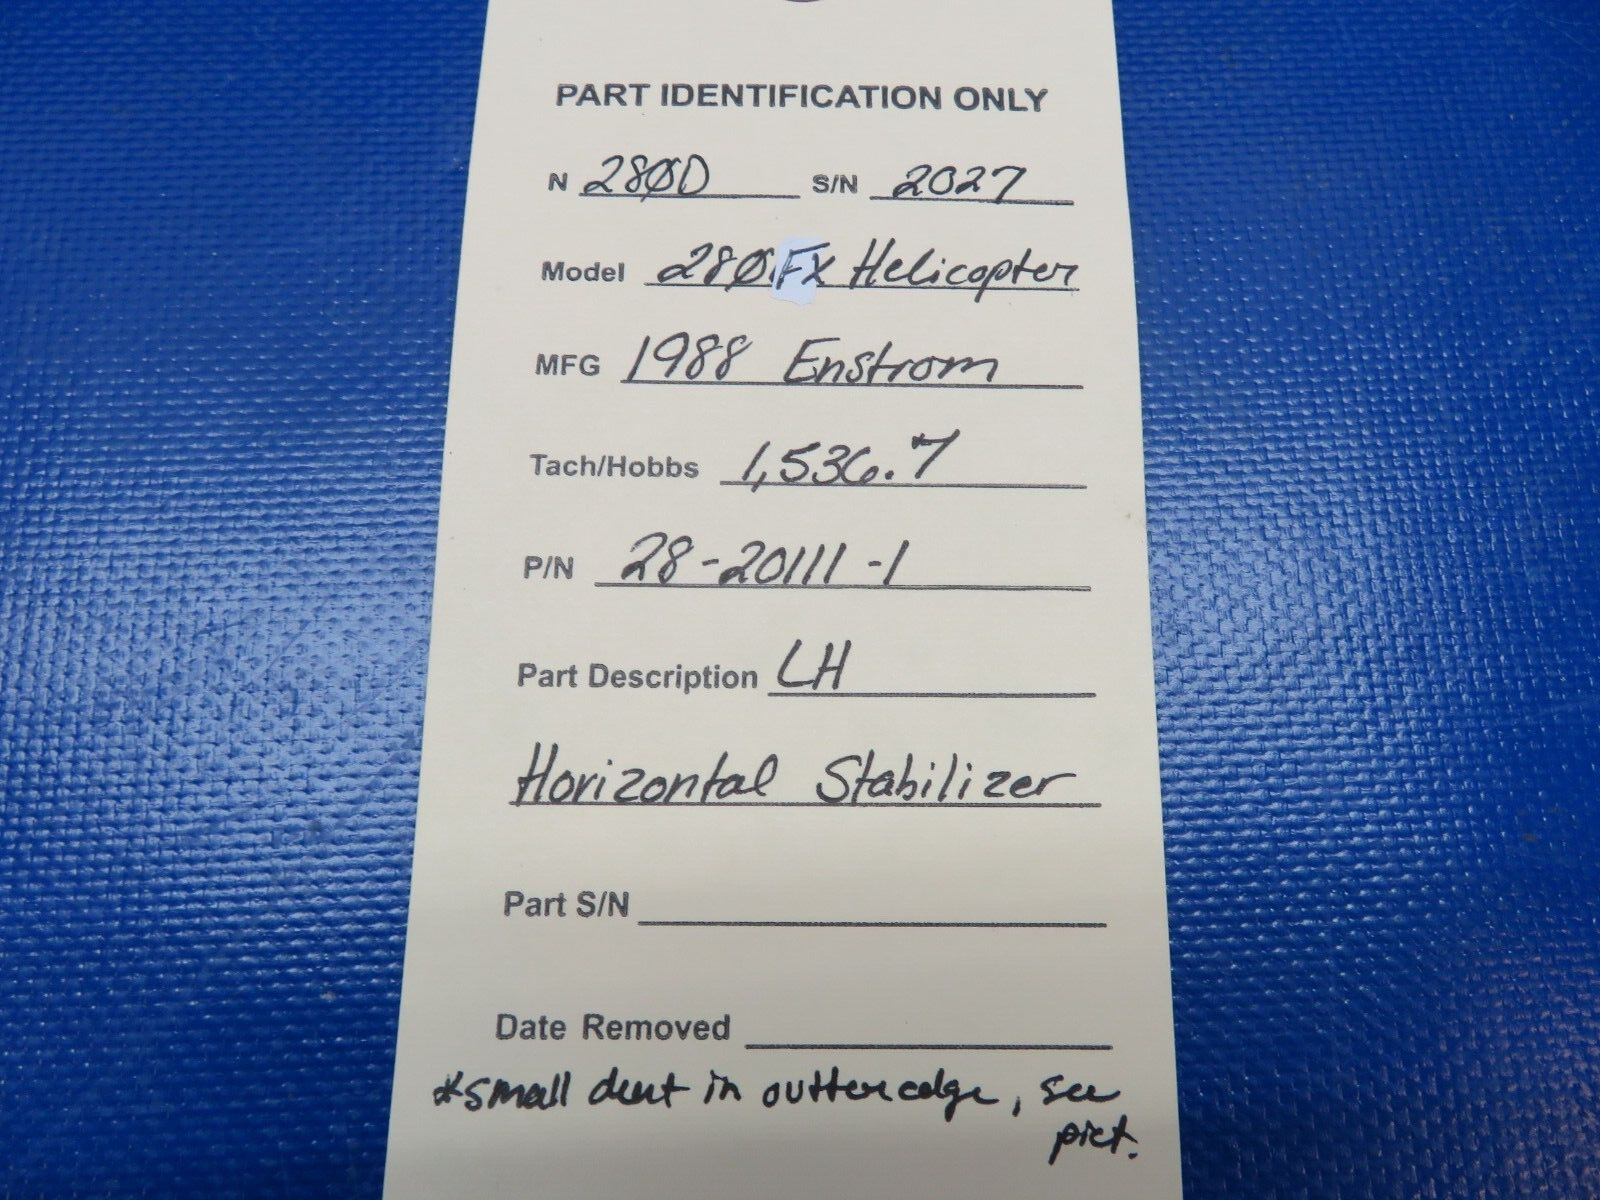 PART IDENTIFICATION ONLY
N 280D S/N 2027
Model 280FX Helicopter
MFG 1988 Enstrom
Tach/Hobbs 1,536.7
P/N 28-20111-1
Part Description LH
Horizontal Stabilizer
Part S/N
Date Removed
*small dent in outter edge, see
pict.